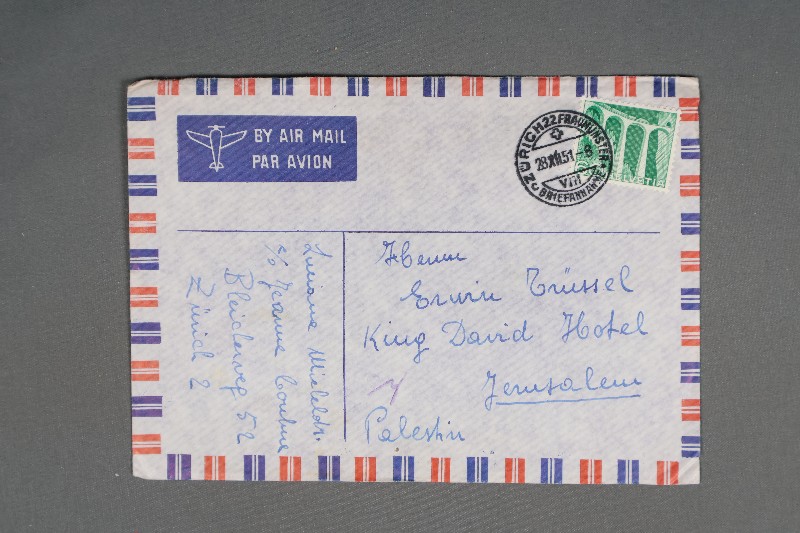 BY AIR MAIL
PAR AVION
ZÜRICH 22 FRAUMÜNSTER
28.XII.51
VIII
BRIEFANNAHME
HELVETIA
Herrn
Erwin Trüssel
King David Hotel
Jerusalem
Palestin
Luciana
c/o Jeanne
Bleicherweg 52
Zürich 2